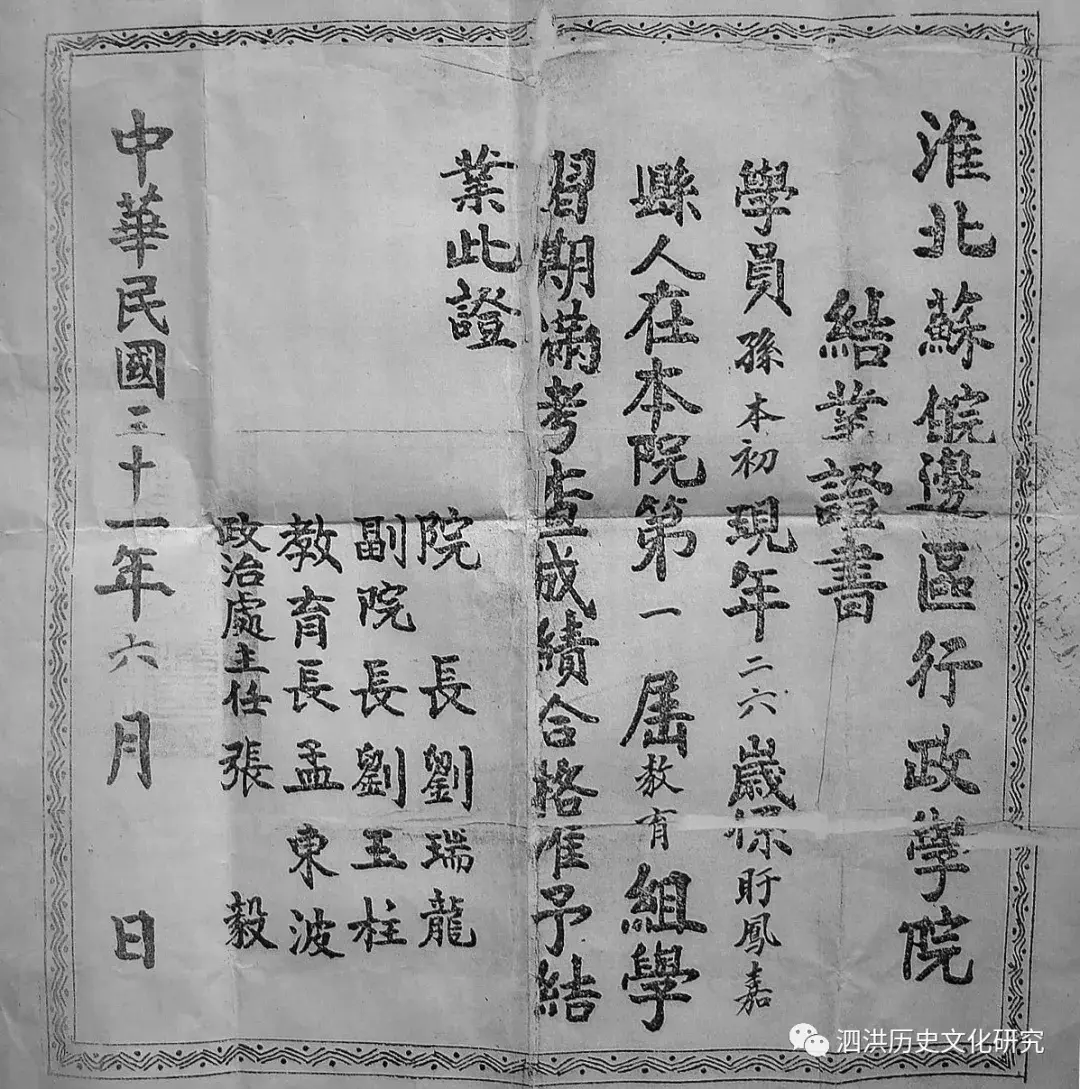 淮北蘇皖邊區行政學院
結業證書
學員孫本初現年二六歲係盱鳳嘉
縣人在本院第一屆教育組學
習期滿考查成績合格准予結
業此證
院長劉瑞龍
副院長劉玉柱
教育長孟東波
政治處主任張毅
中華民國三十一年六月 日
泗洪历史文化研究